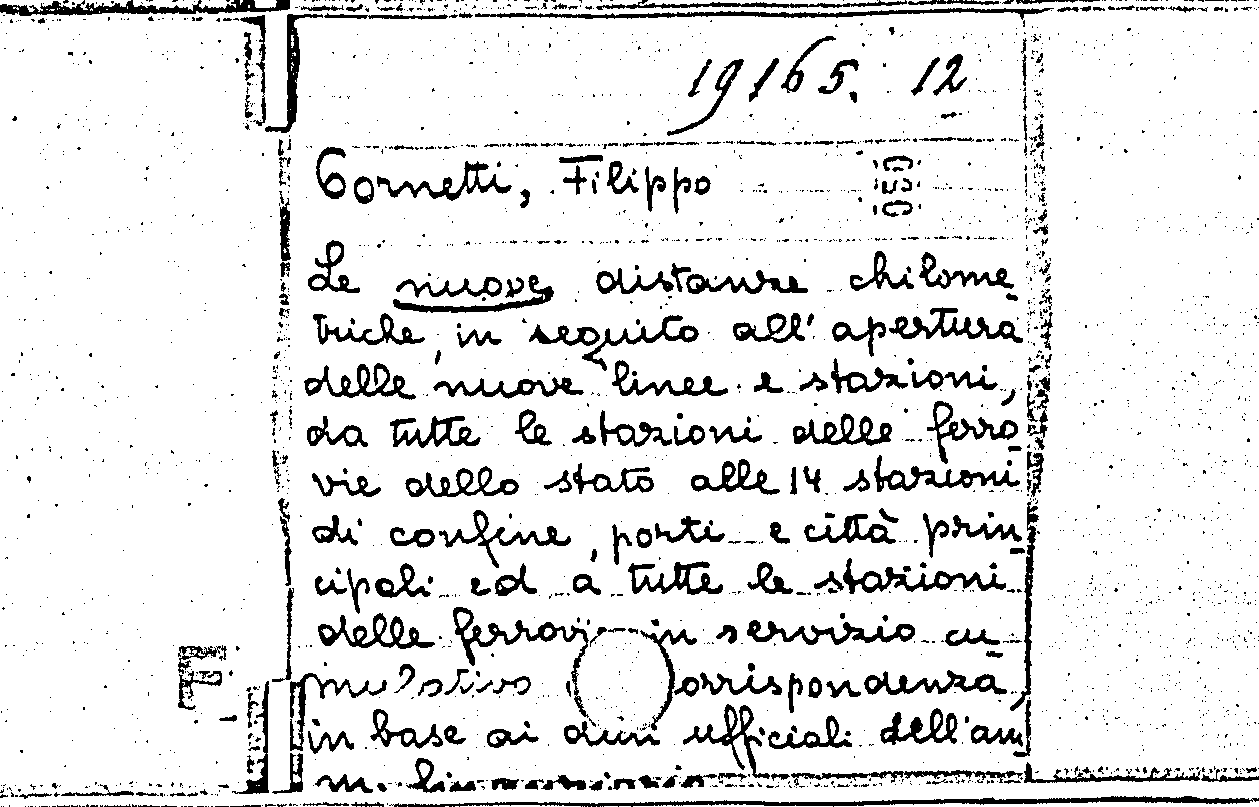 19165. 12
Cornetti, Filippo
Le nuove distanze chilome-
triche, in seguito all'apertura
delle nuove linee e stazioni,
da tutte le stazioni delle ferro-
vie dello stato alle 14 stazioni
di confine, porti e città prin-
cipali ed a tutte le stazioni
delle ferrovie in servizio cu-
mulativo orrispondenza,
in base ai ufficiali dell'am-
m.
F